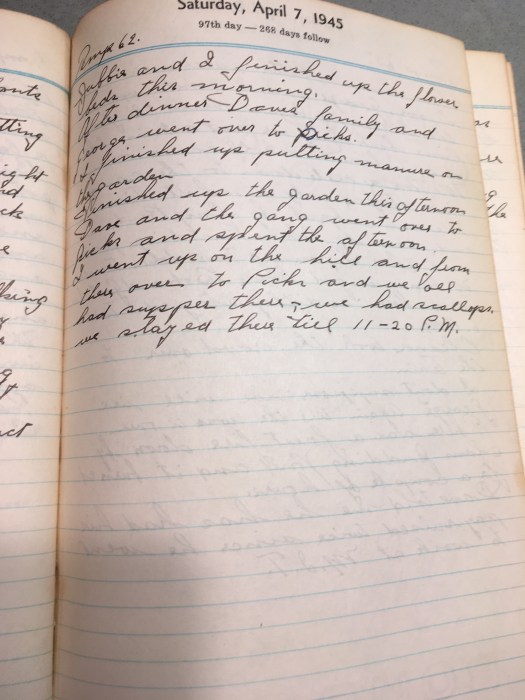 Saturday, April 7, 1945
97th day — 268 days follow
62.
and I finished up the flower
beds this morning.
After dinner Daves family and
George went over to Picks.
I finished up putting manure on
the garden
Finished up the garden this afternoon
Dave and the gang went over to
Picks and spent the afternoon.
I went up on the hill and from
there over to Picks and we all
had supper there, we had scallops.
we stayed there till 11-20 P.M.